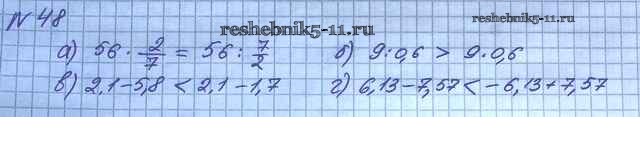 N 48
reshebnik5-11.ru reshebnik5-11.ru
а) 56 · 2/7 = 56 : 7/2 б) 9:0,6 > 9·0,6
в) 2,1-5,8 < 2,1-1,7 г) 6,13-7,57 < -6,13+7,57